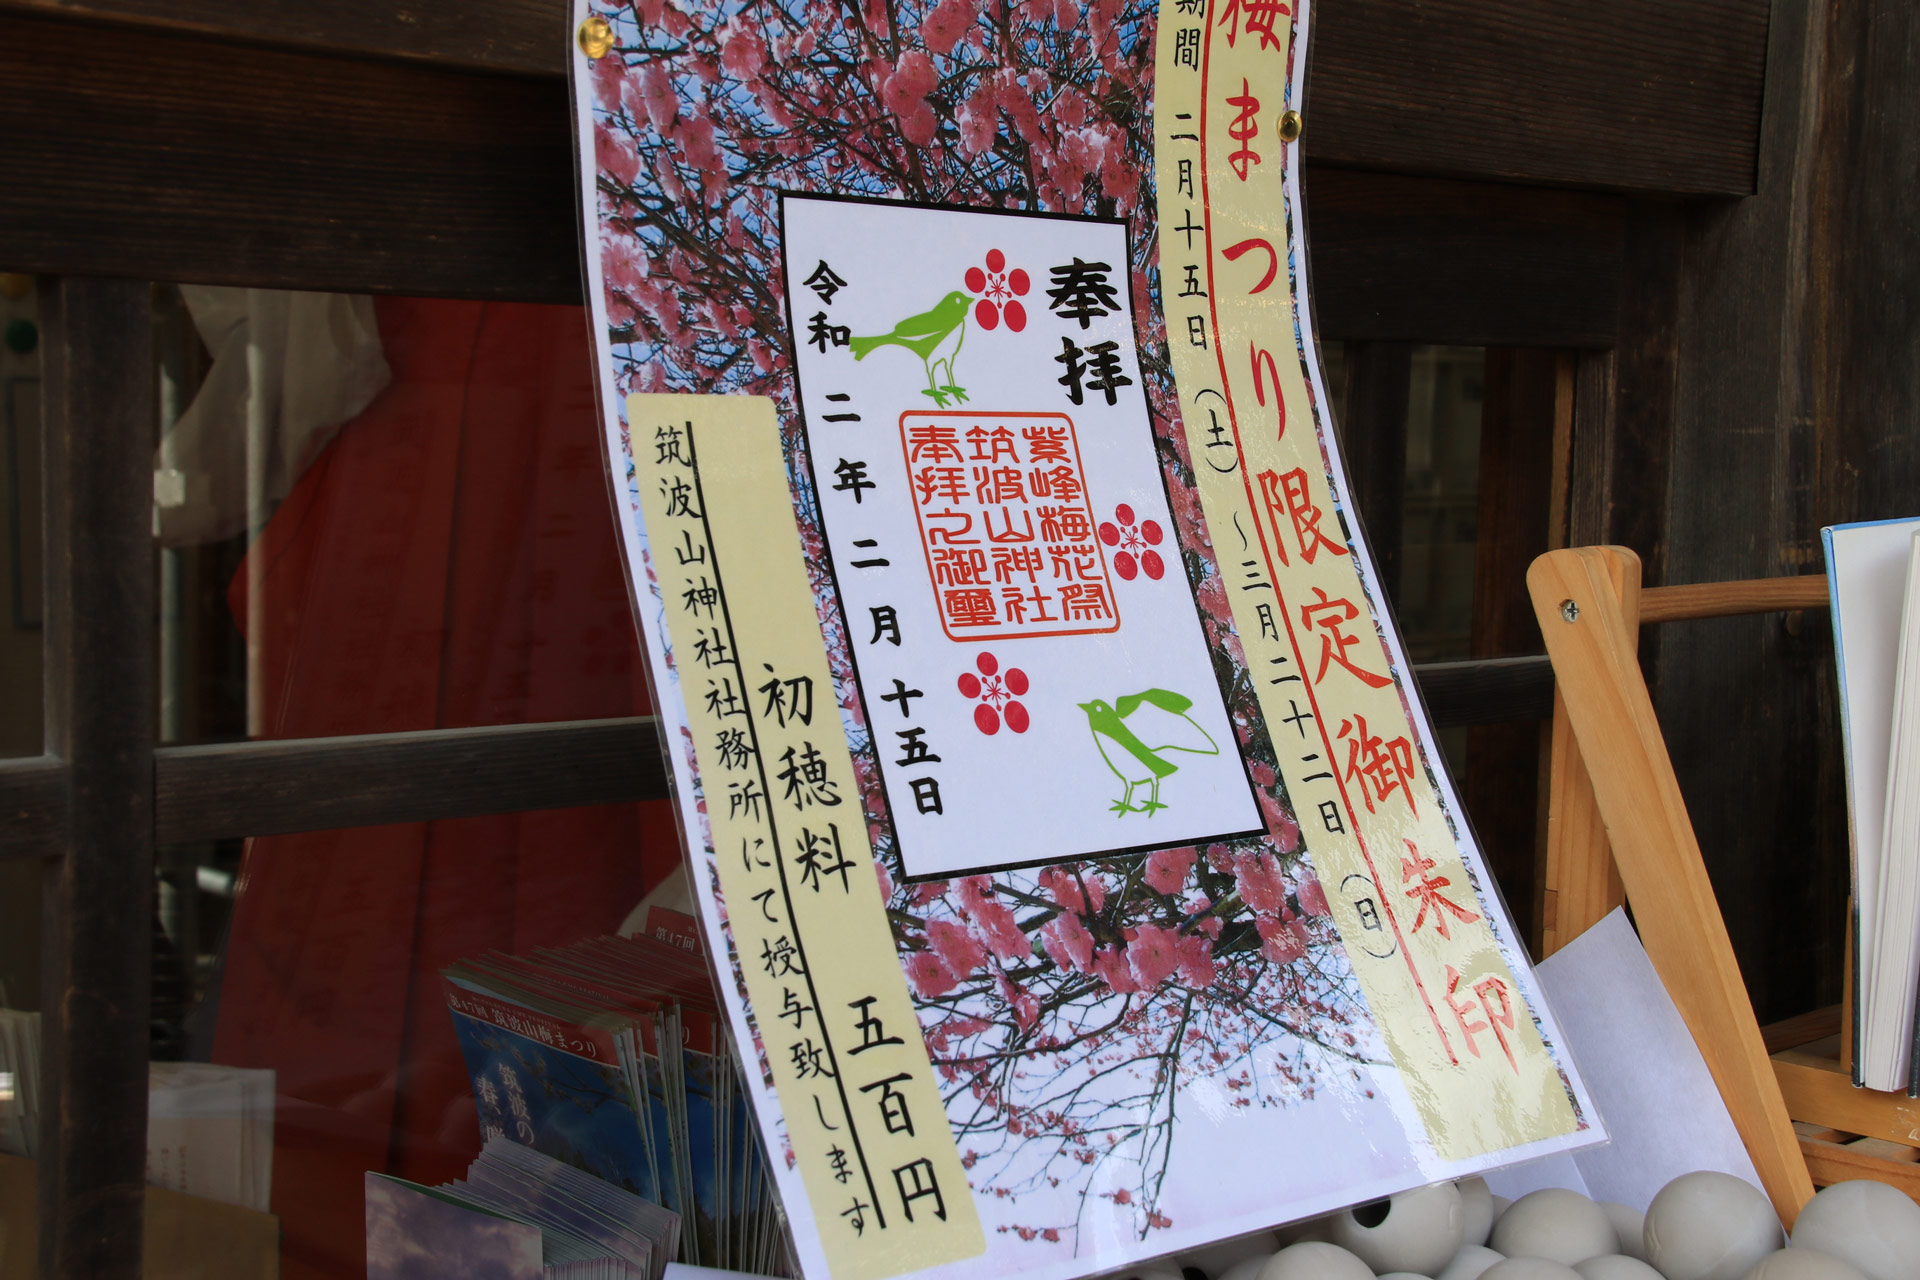 梅まつり限定御朱印
期間 二月十五日(土)～三月二十二日(日)
奉拝
紫峰梅花祭
筑波山神社
奉拝之御璽
令和二年二月十五日
初穂料 五百円
筑波山神社社務所にて授与致します
第47回
第47回 筑波山梅まつり
筑波の
春、